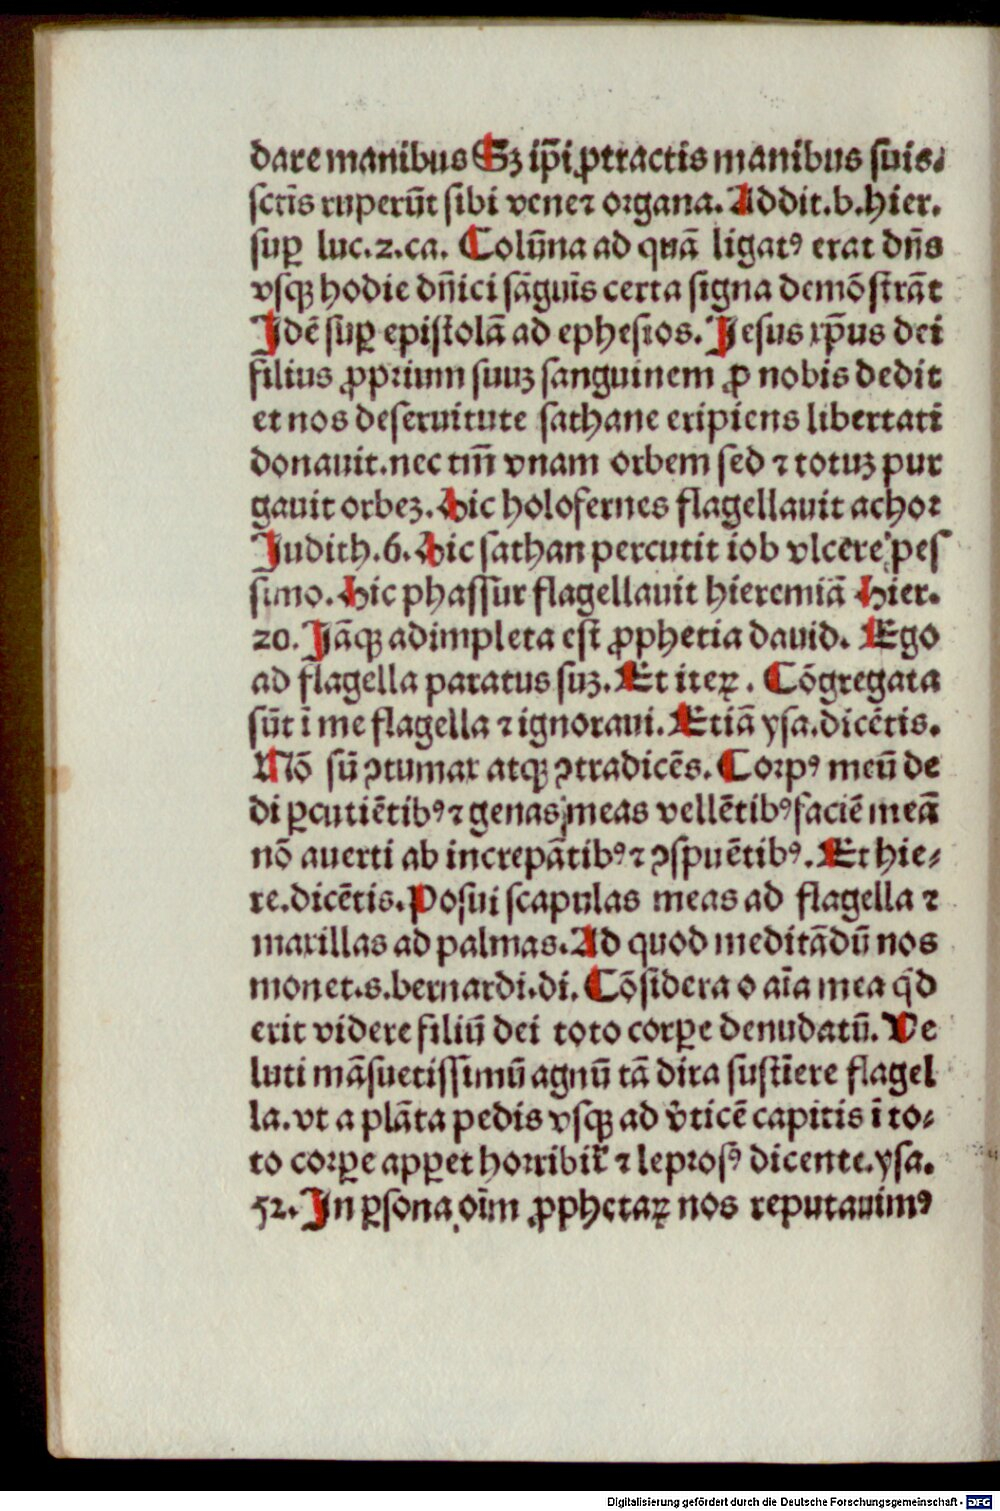 dare manibus Sꝫ ip̄i ꝓtractis manibus suis.
sctīs ruperūt sibi veneꝛ organa. Addit.b.hier.
suꝑ luc.2.ca. Colūna ad quā ligatꝰ erat dn̄s
vsqꝫ hodie dn̄ici sāguīs certa signa demōstrāt
Idē suꝑ epistolā ad ephesios. Jesus xp̄us dei
filius ꝓprium suuꝫ sanguinem ꝓ nobis dedit
et nos deseruitute sathane eripiens libertati
donauit.nec tm̄ vnam orbem sed ⁊ totuꝫ pur
gauit orbeꝫ. Hic holofernes flagellauit achoꝛ
Judith.6. Hic sathan percutit iob vlcere pes
simo. Hic phassūr flagellauit hieremiā Hier.
20. Jāqꝫ adimpleta est ꝓphetia dauid. Ego
ad flagella paratus suꝫ. Et iteꝝ. Cōgregata
sūt ī me flagella ⁊ ignoraui. Etiā ysa.dicētis.
Nō sū ꝯtumax atqꝫ ꝯtradicēs. Coꝛpꝰ meū de
di ꝑcutiētibꝰ ⁊ genas meas vellētibꝰ faciē meā
nō auerti ab increpātibꝰ ⁊ ꝯspuētibꝰ. Et hie⸗
re.dicētis. Posui scapulas meas ad flagella ⁊
maxillas ad palmas. Ad quod meditādū nos
monet.s.bernardi.di. Cōsidera o aīa mea qͥd
erit videre filiū dei toto coꝛꝑe denudatū. Ve
luti māsuetissimū agnū tā dira sustīere flagel
la.vt a plāta pedis vsqꝫ ad v̓ticē capitis ī to⸗
to coꝛꝑe apꝑet hoꝛribil̓ ⁊ leprosꝰ dicente.ysa.
52. In ꝑsona oīm ꝓphetaꝝ nos reputauimꝰ
Digitalisierung gefördert durch die Deutsche Forschungsgemeinschaft - DFG